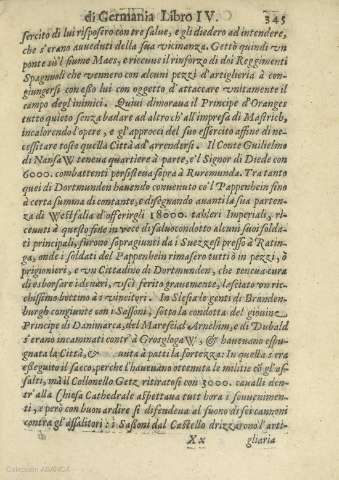 di Germania Libro IV. 345
sercito di lui risposero con tre salue, e gli diedero ad intendere,
che s'erano aueduti della sua vicinanza. Gettò quindi vn
ponte su'l fiume Maes, e riceuè il rinforzo di doi Reggimenti
Spagnuoli che vennero con alcuni pezzi d'artiglieria à con-
giungersi con esso lui con oggetto d'attaccare vnitamente il
campo degl'inimici. Quiui dimoraua il Principe d'Oranges
tutto quieto senza badare ad altro ch'all'impresa di Mastrich,
incalorendo l'opere, e gl'approcci del suo essercito affine di ne-
cessitare tosto quella Città ad'arrendersi. Il Conte Guilielmo
di NansaW teneua quartiere à parte, e'l Signor di Diede con
6000. combattenti persisteua soprà à Ruremunda. Tra tanto
quei di Dortmunden hauendo conuenuto co'l Pappenheim sino
à certa summa di contante, e disegnando auanti la sua parten-
za di Westfalia d'offerirgli 18000. talleri Imperiali, ri-
ceuuti à questo fine in voce di saluocondotto alcuni suoi solda-
ti principali, furono sopragiunti da i Suezzesi presso à Ratin-
ga, onde i soldati del Pappenheim rimasero tutti ò in pezzi, ò
prigionieri, e vn Cittadino di Dortmunden, che teneua cura
di esborsare i denari, vscì ferito grauemente, lasciato vn ric-
chissimo bottino à i vincitori. In Slesia le genti di Branden-
burgh congiunte con i Sassoni, sotto la condotta del giouine
Principe di Danimarca, del Marescial Arnheim, e di Dubald
s'erano incaminati contr'à GrosglogaW, & haueuano espug-
nata la Città, & unta à patti la fortezza: In quella s'era
esseguito il sacco, perche l'haueuano ottenuta le militie cõ gl'as-
salti, mà il Collonello Getz ritiratosi con 3000. caualli den-
tr'alla Chiesa Cathedrale aspettaua tutt'hora i souuenimen-
ti, e però con buon'ardire si difendeua al suono di sei cannoni
contra gl'assalitori: i Sassoni dal Castello drizzarono l'arti-
Xx gliaria
Colección ABANCA